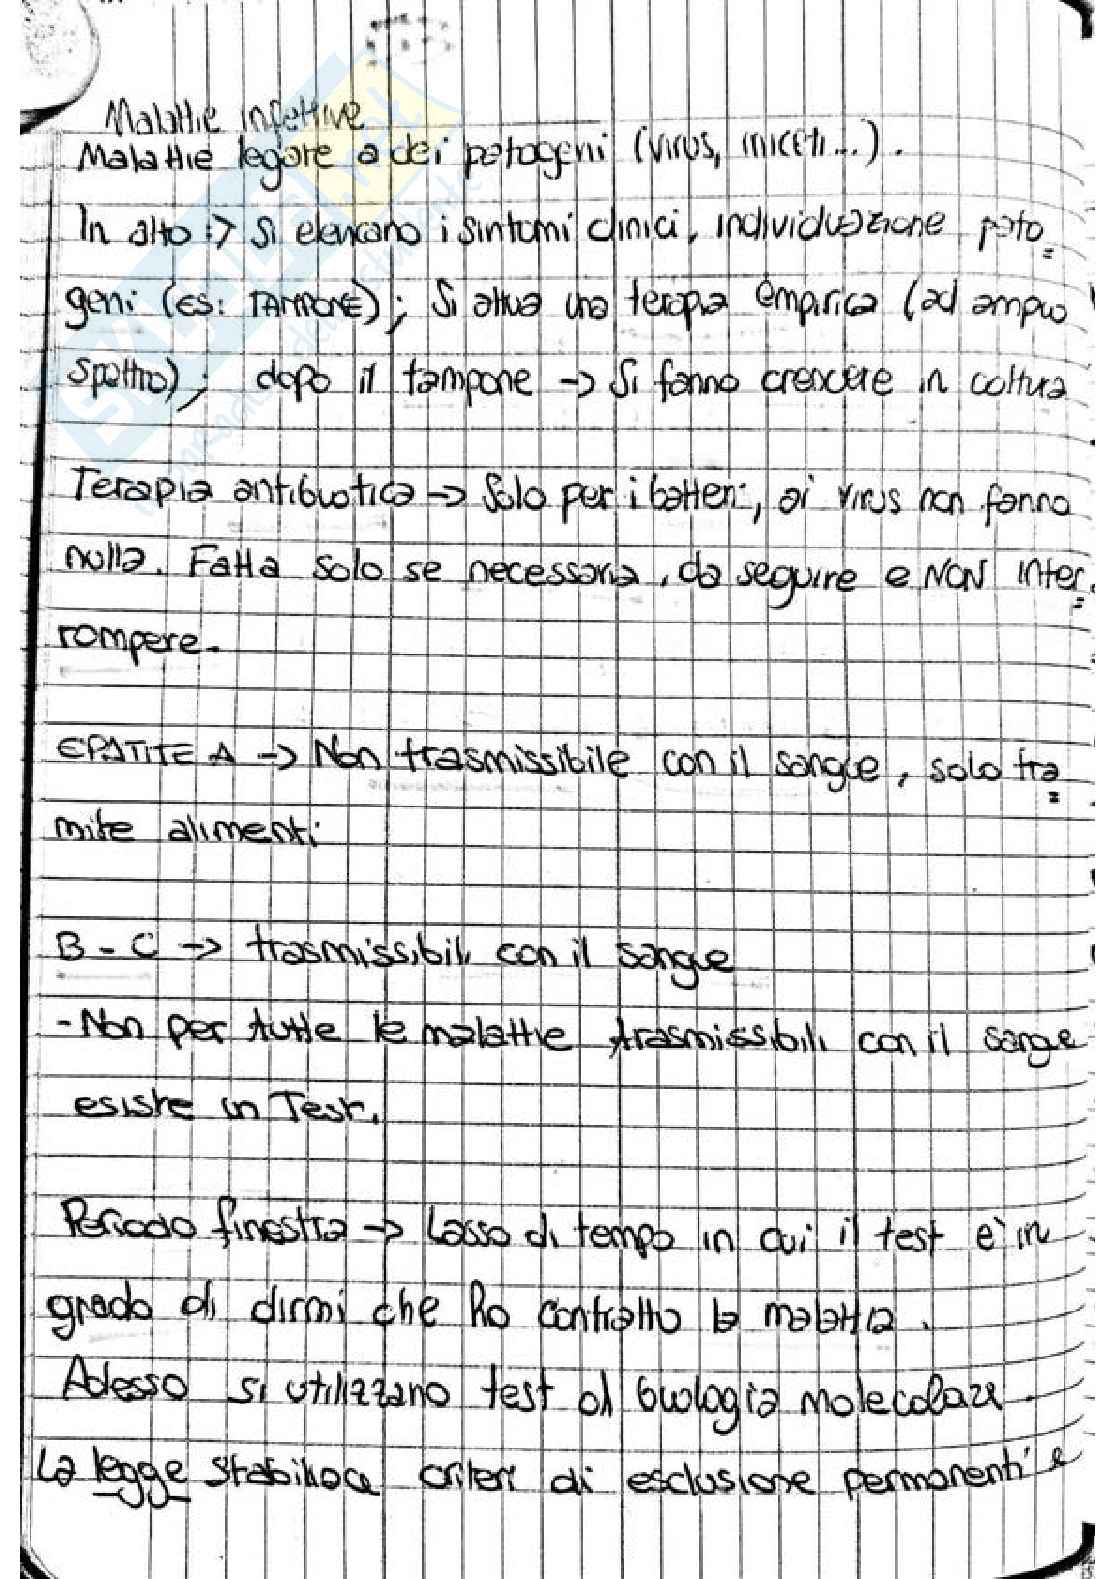 Malattie infettive
Malattie legate a dei patogeni (virus, miceti...).
In alto :> Si elencano i sintomi clinici, individuazione pato=
geni (ES: TAMPONE); Si attua una terapia empirica (ad ampio
spettro); dopo il tampone -> Si fanno crescere in coltura
Terapia antibiotica -> Solo per i batteri, ai virus non fanno
nulla. Fatta solo se necessaria, da seguire e NON inter=
rompere.
EPATITE A -> Non trasmissibile con il sangue, solo tra=
mite alimenti
B - C -> trasmissibili con il sangue
- Non per tutte le malattie trasmissibili con il sangue
esiste un Test.
Periodo finestra -> Lasso di tempo in cui il test è in
grado di dirmi che ho contratto la malattia.
Adesso si utilizzano test di biologia molecolare.
La legge stabilisce criteri di esclusione permanenti e